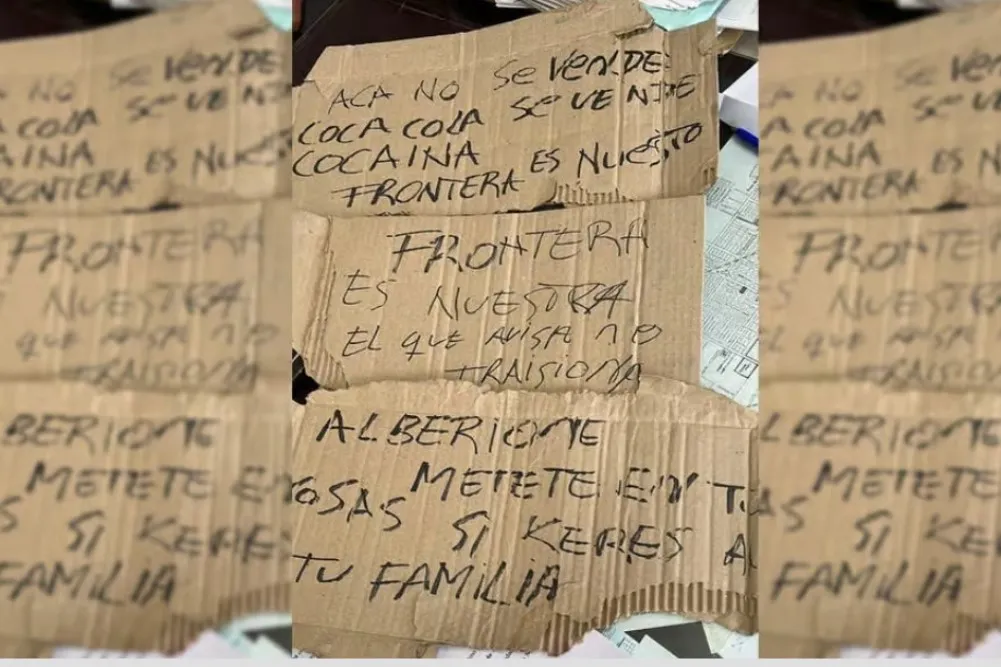 ACA NO SE VENDE
COCA COLA SE VENDE
COCAINA ES NUESTO
FRONTERA
FRONTERA
ES NUESTRA
EL QUE AVISA NO
TRAISIONA
ALBERIONE
METETE EN TU
COSAS SI KERES A
TU FAMILIA